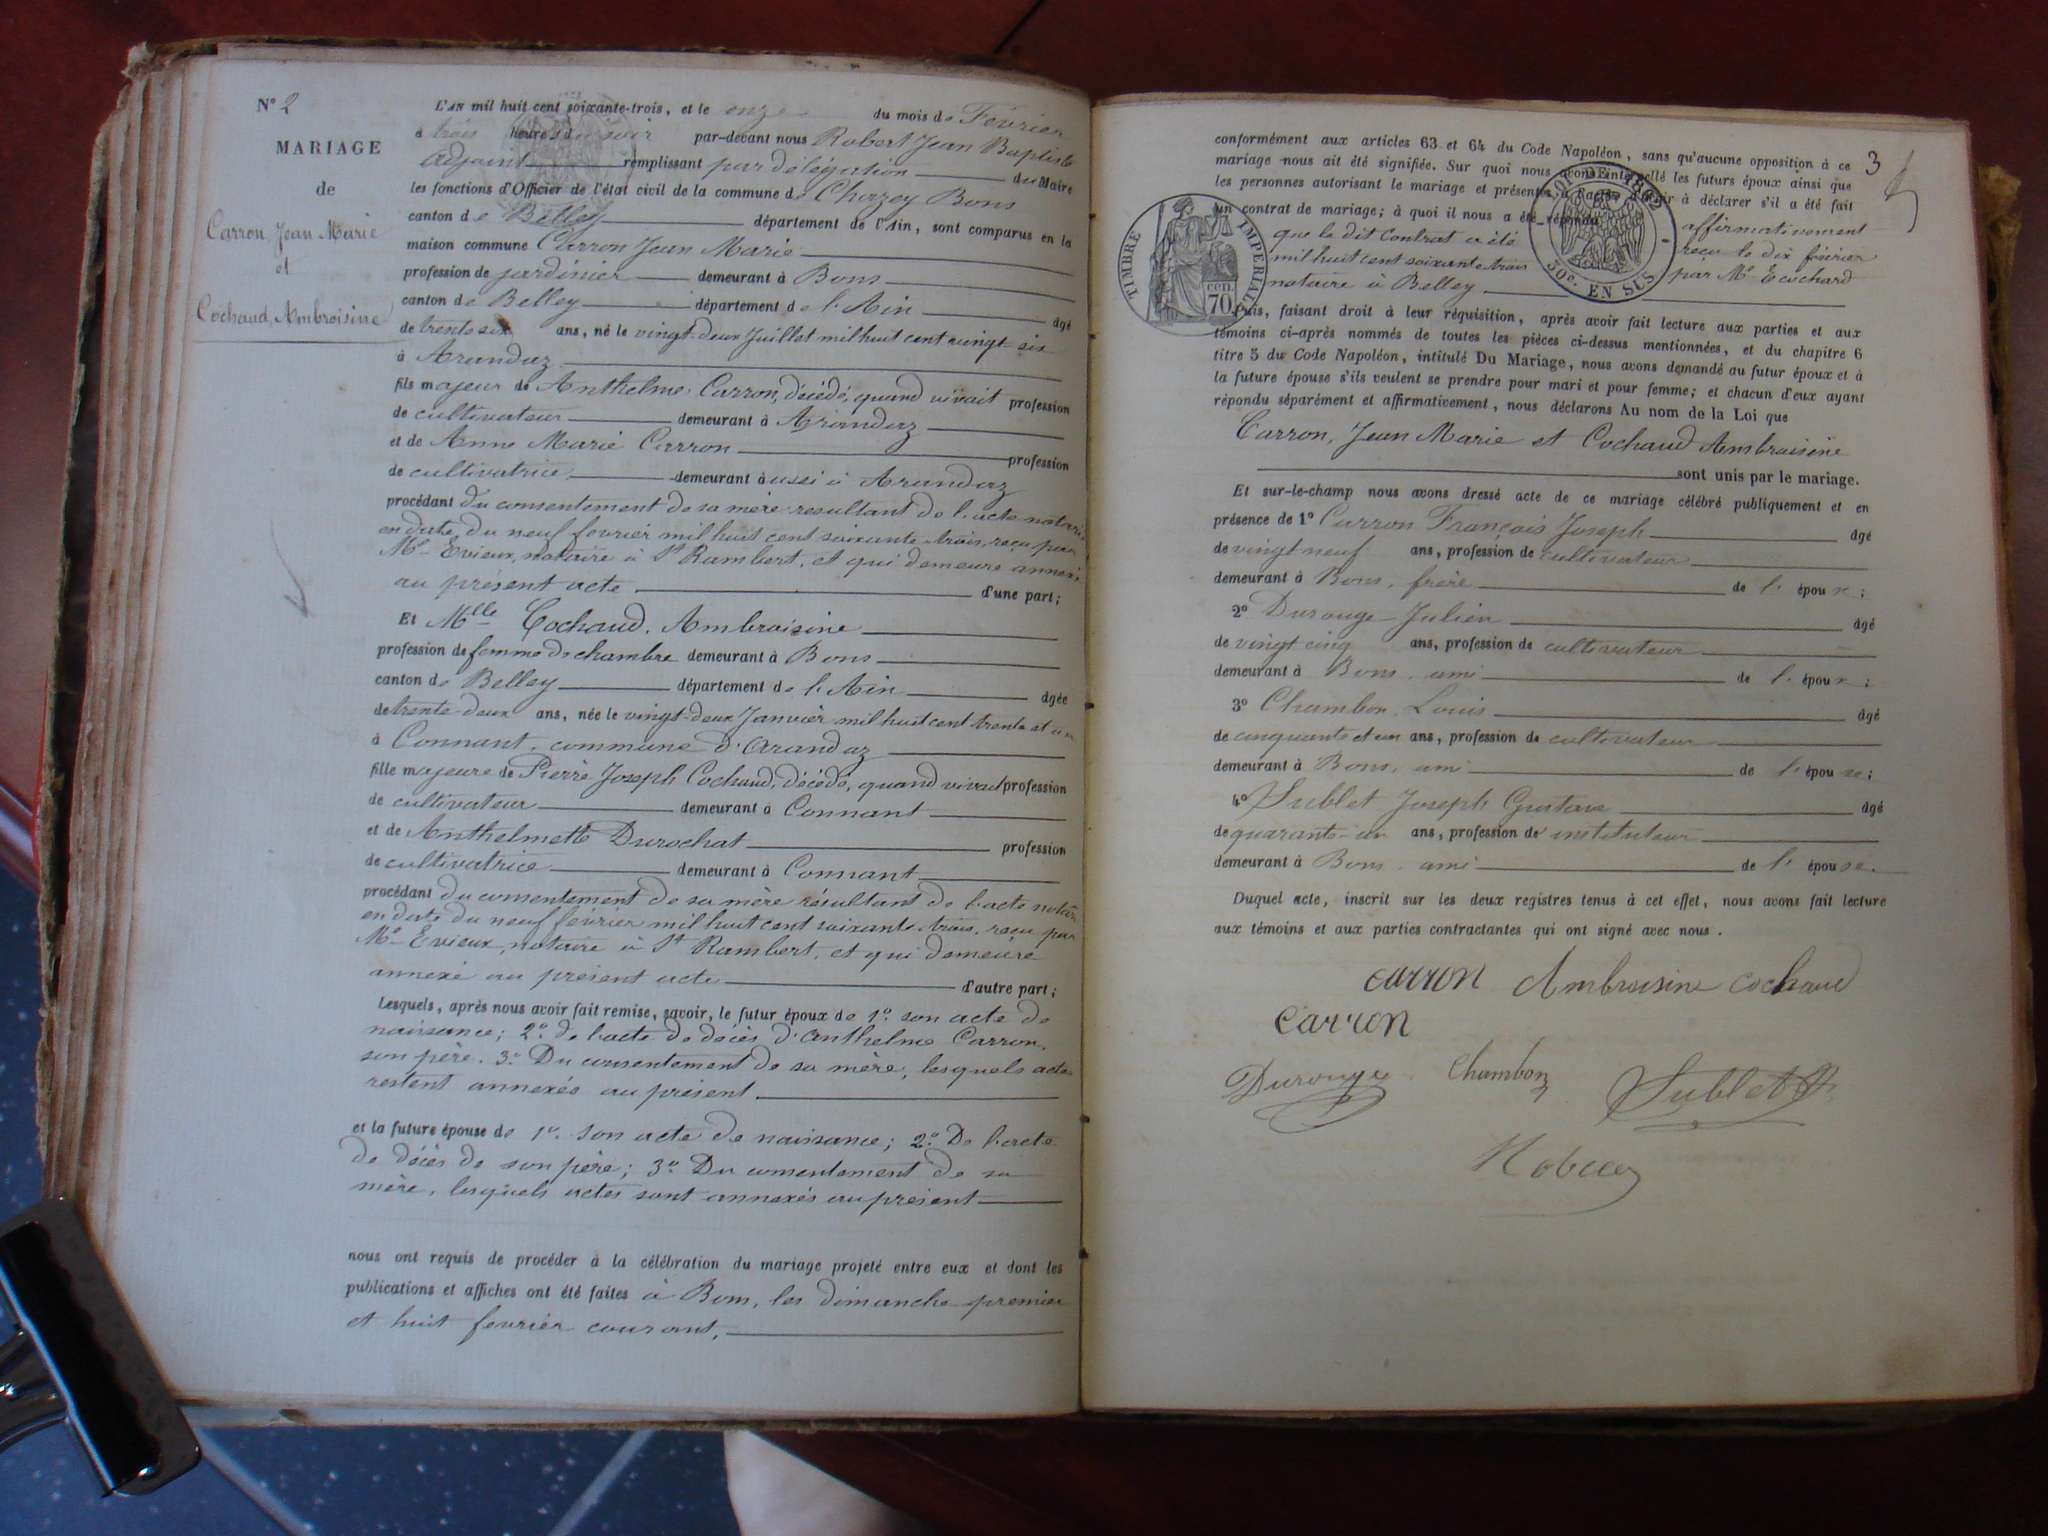 N° 2
MARIAGE
de
Carron, Jean Marie
et
Cochaud, Ambroisine
L'AN mil huit cent soixante-trois, et le onze du mois de Février
à trois heures du soir par-devant nous Robert Jean Baptiste
adjoint remplissant par délégation du Maire
les fonctions d'Officier de l'état civil de la commune de Chazey Bons
canton de Belley département de l'Ain, sont comparus en la
maison commune Carron Jean Marie
profession de jardinier demeurant à Bons
canton de Belley département de l'Ain âgé
de trente six ans, né le vingt-deux Juillet mil huit cent vingt six
à Arandaz
fils majeur de Anthelme Carron, décédé, quand vivait profession
de cultivateur demeurant à Arandaz
et de Anne Marie Carron profession
de cultivatrice demeurant aussi à Arandaz
procédant du consentement de sa mère résultant de l'acte notarié
en date du neuf fevrier mil huit cent soixante trois, reçu par
Me Evieux, notaire à St Rambert, et qui demeure annexé
au présent acte d'une part;
Et Mlle Cochaud, Ambroisine
profession de femme de chambre demeurant à Bons
canton de Belley département de l'Ain âgée
de trente-deux ans, née le vingt-deux Janvier mil huit cent trente et un
à Connant, commune d'Arandaz
fille majeure de Pierre Joseph Cochaud, décédé, quand vivait profession
de cultivateur demeurant à Connant
et de Anthelmette Durochat profession
de cultivatrice demeurant à Connant
procédant du consentement de sa mère résultant de l'acte notarié
en date du neuf février mil huit cent soixante trois, reçu par
Me Evieux, notaire à St Rambert, et qui demeure
annexé au présent acte d'autre part;
Lesquels, après nous avoir fait remise, savoir, le futur époux de 1° son acte de
naissance; 2° de l'acte de décès d'Anthelme Carron,
son père. 3° Du consentement de sa mère, lesquels actes
restent annexés au présent
et la future épouse de 1° son acte de naissance; 2° De l'acte
de décès de son père; 3° Du consentement de sa
mère, lesquels actes sont annexés au présent
nous ont requis de procéder à la célébration du mariage projeté entre eux et dont les
publications et affiches ont été faites à Bons, les dimanche premier
et huit fevrier courant,
3
conformément aux articles 63 et 64 du Code Napoléon, sans qu'aucune opposition à ce
mariage nous ait été signifiée. Sur quoi nous avons interpellé les futurs époux ainsi que
les personnes autorisant le mariage et présentes à l'acte à déclarer s'il a été fait
un contrat de mariage; à quoi il nous a été répondu affirmativement
que le dit contrat a été reçu le dix février
mil huit cent soixante trois par Me Ecochard
notaire à Belley
TIMBRE IMPERIAL
70 cen.
LOI DE 1862
50c. EN SUS
Puis, faisant droit à leur réquisition, après avoir fait lecture aux parties et aux
témoins ci-après nommés de toutes les pièces ci-dessus mentionnées, et du chapitre 6
titre 5 du Code Napoléon, intitulé Du Mariage, nous avons demandé au futur époux et à
la future épouse s'ils veulent se prendre pour mari et pour femme; et chacun d'eux ayant
répondu séparément et affirmativement, nous déclarons Au nom de la Loi que
Carron, Jean Marie et Cochaud Ambroisine
sont unis par le mariage.
Et sur-le-champ nous avons dressé acte de ce mariage célébré publiquement et en
présence de 1° Carron François Joseph âgé
de vingt neuf ans, profession de cultivateur
demeurant à Bons, frère de l'époux;
2° Durouge Julien âgé
de vingt cinq ans, profession de cultivateur
demeurant à Bons, ami de l'époux;
3° Chambon, Louis âgé
de cinquante et un ans, profession de cultivateur
demeurant à Bons, ami de l'épouse;
4° Sublet Joseph Gustave âgé
de quarante-un ans, profession de instituteur
demeurant à Bons, ami de l'épouse.
Duquel acte, inscrit sur les deux registres tenus à cet effet, nous avons fait lecture
aux témoins et aux parties contractantes qui ont signé avec nous.
carron Ambroisine cochaud
carron
Durouge Chambon Sublet